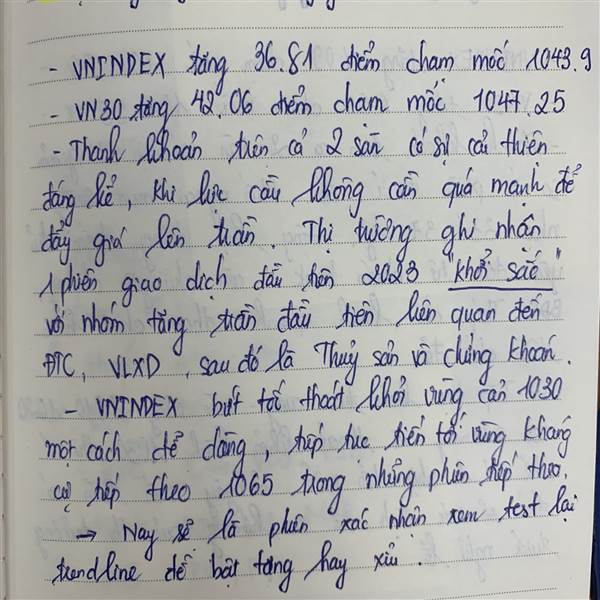 - VNINDEX tăng 36.81 điểm chạm mốc 1043.9
- VN30 tăng 42.06 điểm chạm mốc 1047.25
- Thanh khoản trên cả 2 sàn có sự cải thiện
đáng kể, khi lực cầu không cần quá mạnh để
đẩy giá lên trần. Thị trường ghi nhận
1 phiên giao dịch đầu tiên 2023 "khởi sắc"
với nhóm tăng trần đầu tiên liên quan đến
ĐTC, VLXD, sau đó là Thuỷ sản và chứng khoán.
- VNINDEX bứt tốc thoát khỏi vùng cản 1030
một cách dễ dàng, tiếp tục tiến tới vùng kháng
cự tiếp theo 1065 trong những phiên tiếp theo.
→ Nay sẽ là phiên xác nhận xem test lại
trendline để bật tăng hay xỉu.